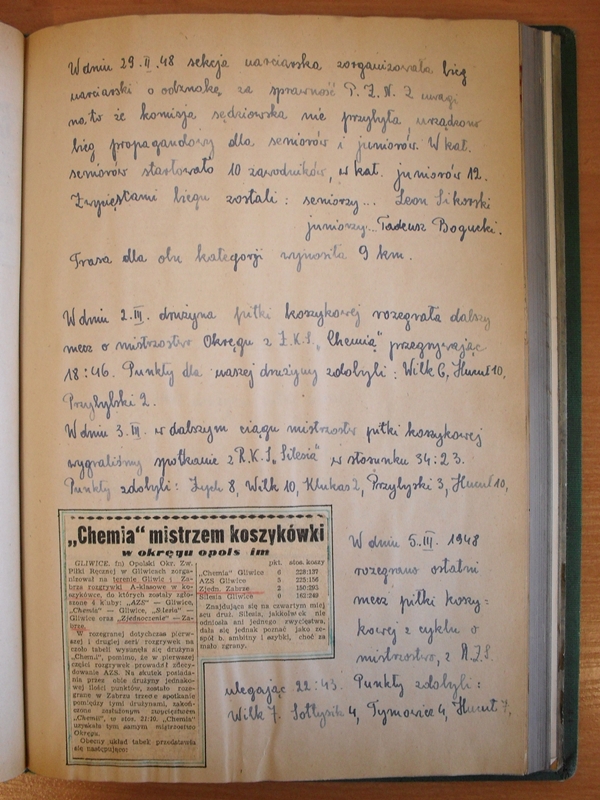 W dniu 29.II.48 sekcja narciarska zorganizowała bieg
narciarski o odznakę za sprawność P.Z.N. Z uwagi
na to że komisja sędziowska nie przybyła urządzono
bieg propagandowy dla seniorów i juniorów. W kat.
seniorów startowało 10 zawodników, w kat. juniorów 12.
Zwycięzcami biegu zostali: seniorzy... Leon Sikorski
juniorzy... Tadeusz Bogucki.
Trasa dla obu kategorji wynosiła 9 km.
W dniu 2.III. drużyna piłki koszykowej rozegrała dalszy
mecz o mistrzostwo Okręgu z Z.K.S. „Chemią" przegrywając
18:46. Punkty dla naszej drużyny zdobyli: Wilk 6, Hucuł 10,
Przybylski 2.
W dniu 3.III. w dalszym ciągu mistrzostw piłki koszykowej
wygraliśmy spotkanie z R.K.S. „Silesia" w stosunku 34:23.
Punkty zdobyli: Zych 8, Wilk 10, Klukas 2, Przybyski 3, Hucuł 10,
„Chemia" mistrzem koszykówki
w okręgu opols im
GLIWICE. fn) Opolski Okr. Zw.
Piłki Ręcznej w Gliwicach zorga-
nizował na terenie Gliwic i Za-
brza rozgrywki A-klasowe w ko-
szykówce, do których zostały zgło-
szone 4 kluby: „AZS" — Gliwice,
„Chemia" — Gliwice, „Silesia" —
Gliwice oraz „Zjednoczenie" — Za-
brze.
W rozegranej dotychczas pierw-
szej i drugiej serii rozgrywek na
czoło tabeli wysunęła się drużyna
„Chemii", pomimo, że w pierwszej
części rozgrywek prowadził zdecy-
dowanie AZS. Na skutek posiada-
nia przez obie drużyny jednako-
wej ilości punktów, zostało roze-
grane w Zabrzu trzecie spotkanie
pomiędzy tymi drużynami, zakoń-
czone zasłużonym zwycięstwem
„Chemii", w stos. 21:10. „Chemia"
uzyskała tym samym mistrzostwo
Okręgu.
Obecny układ tabek przedstawia
się następująco:
pkt. stos. koszy
„Chemia" Gliwice 6 228:137
AZS Gliwice 5 225:156
Zjedn. Zabrze 2 150:293
Silesia Gliwice 0 162:249
Znajdująca się na czwartym miej
scu druż. Silesia, jakkolwiek nie
odniosła ani jednego zwycięstwa,
dała się jednak poznać jako ze-
spół b. ambitny i szybki, choć za
mało zgrany.
W dniu 5.III. 1948
rozegrano ostatni
mecz piłki koszy-
kowej z cyklu o
mistrzostwo, z A.Z.S.
ulegając 22:43. Punkty zdobyli:
Wilk 7, Sołtysik 4, Tymowicz 4, Hucuł 7.